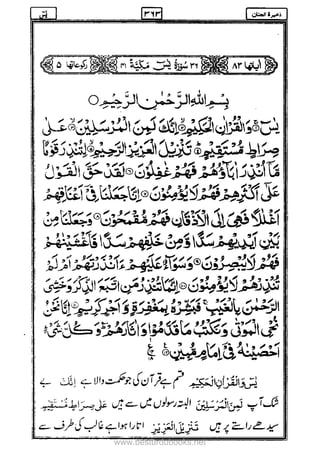 ذخيرة الجنان ٣٦٣ يٰسٓ
اٰیاتها ٨٣ ٣٦ سُوْرَةُ يٰسٓ مَكِّيَّةٌ ٤١ رکوعاتها ٥
بِسْمِ اللهِ الرَّحْمٰنِ الرَّحِيْمِ
يٰسٓ ۚ وَالْقُرْاٰنِ الْحَكِيْمِ ۙ اِنَّكَ لَمِنَ الْمُرْسَلِيْنَ ۙ عَلٰى
صِرَاطٍ مُّسْتَقِيْمٍ ۗ تَنْزِيْلَ الْعَزِيْزِ الرَّحِيْمِ ۙ لِتُنْذِرَ قَوْمًا
مَّآ اُنْذِرَ اٰبَآؤُهُمْ فَهُمْ غٰفِلُوْنَ ۝ لَقَدْ حَقَّ الْقَوْلُ
عَلٰٓى اَكْثَرِهِمْ فَهُمْ لَا يُؤْمِنُوْنَ ۝ اِنَّا جَعَلْنَا فِيْٓ اَعْنَاقِهِمْ
اَغْلٰلًا فَهِيَ اِلَى الْاَذْقَانِ فَهُمْ مُّقْمَحُوْنَ ۝ وَجَعَلْنَا مِنْۢ
بَيْنِ اَيْدِيْهِمْ سَدًّا وَّمِنْ خَلْفِهِمْ سَدًّا فَاَغْشَيْنٰهُمْ
فَهُمْ لَا يُبْصِرُوْنَ ۝ وَسَوَآءٌ عَلَيْهِمْ ءَاَنْذَرْتَهُمْ اَمْ لَمْ
تُنْذِرْهُمْ لَا يُؤْمِنُوْنَ ۝ اِنَّمَا تُنْذِرُ مَنِ اتَّبَعَ الذِّكْرَ وَخَشِيَ
الرَّحْمٰنَ بِالْغَيْبِ ۚ فَبَشِّرْهُ بِمَغْفِرَةٍ وَّاَجْرٍ كَرِيْمٍ ۝ اِنَّا نَحْنُ
نُحْيِ الْمَوْتٰى وَنَكْتُبُ مَا قَدَّمُوْا وَاٰثَارَهُمْ ۭ وَكُلَّ شَيْءٍ
اَحْصَيْنٰهُ فِيْٓ اِمَامٍ مُّبِيْنٍ ۝
يٰسٓ وَالْقُرْاٰنِ الْحَكِيْمِ قسم ہے قرآن کی جو حکمت والا ہے اِنَّكَ بے
شک آپ لَمِنَ الْمُرْسَلِيْنَ البتہ رسولوں میں سے ہیں عَلٰى صِرَاطٍ مُّسْتَقِيْمٍ
سیدھے راستے پر ہیں تَنْزِيْلَ الْعَزِيْزِ اتارا ہوا ہے غالب کی طرف سے
www.besturdubooks.net